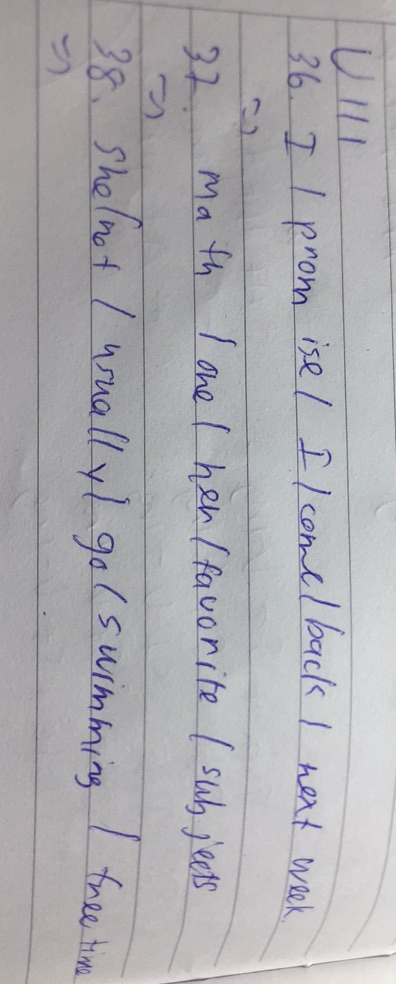 VIII
36. I / promise / I / come / back / next week.
=>
37. Math / one / her / favorite / subjects
=>
38. She / not / usually / go / swimming / free time
=>